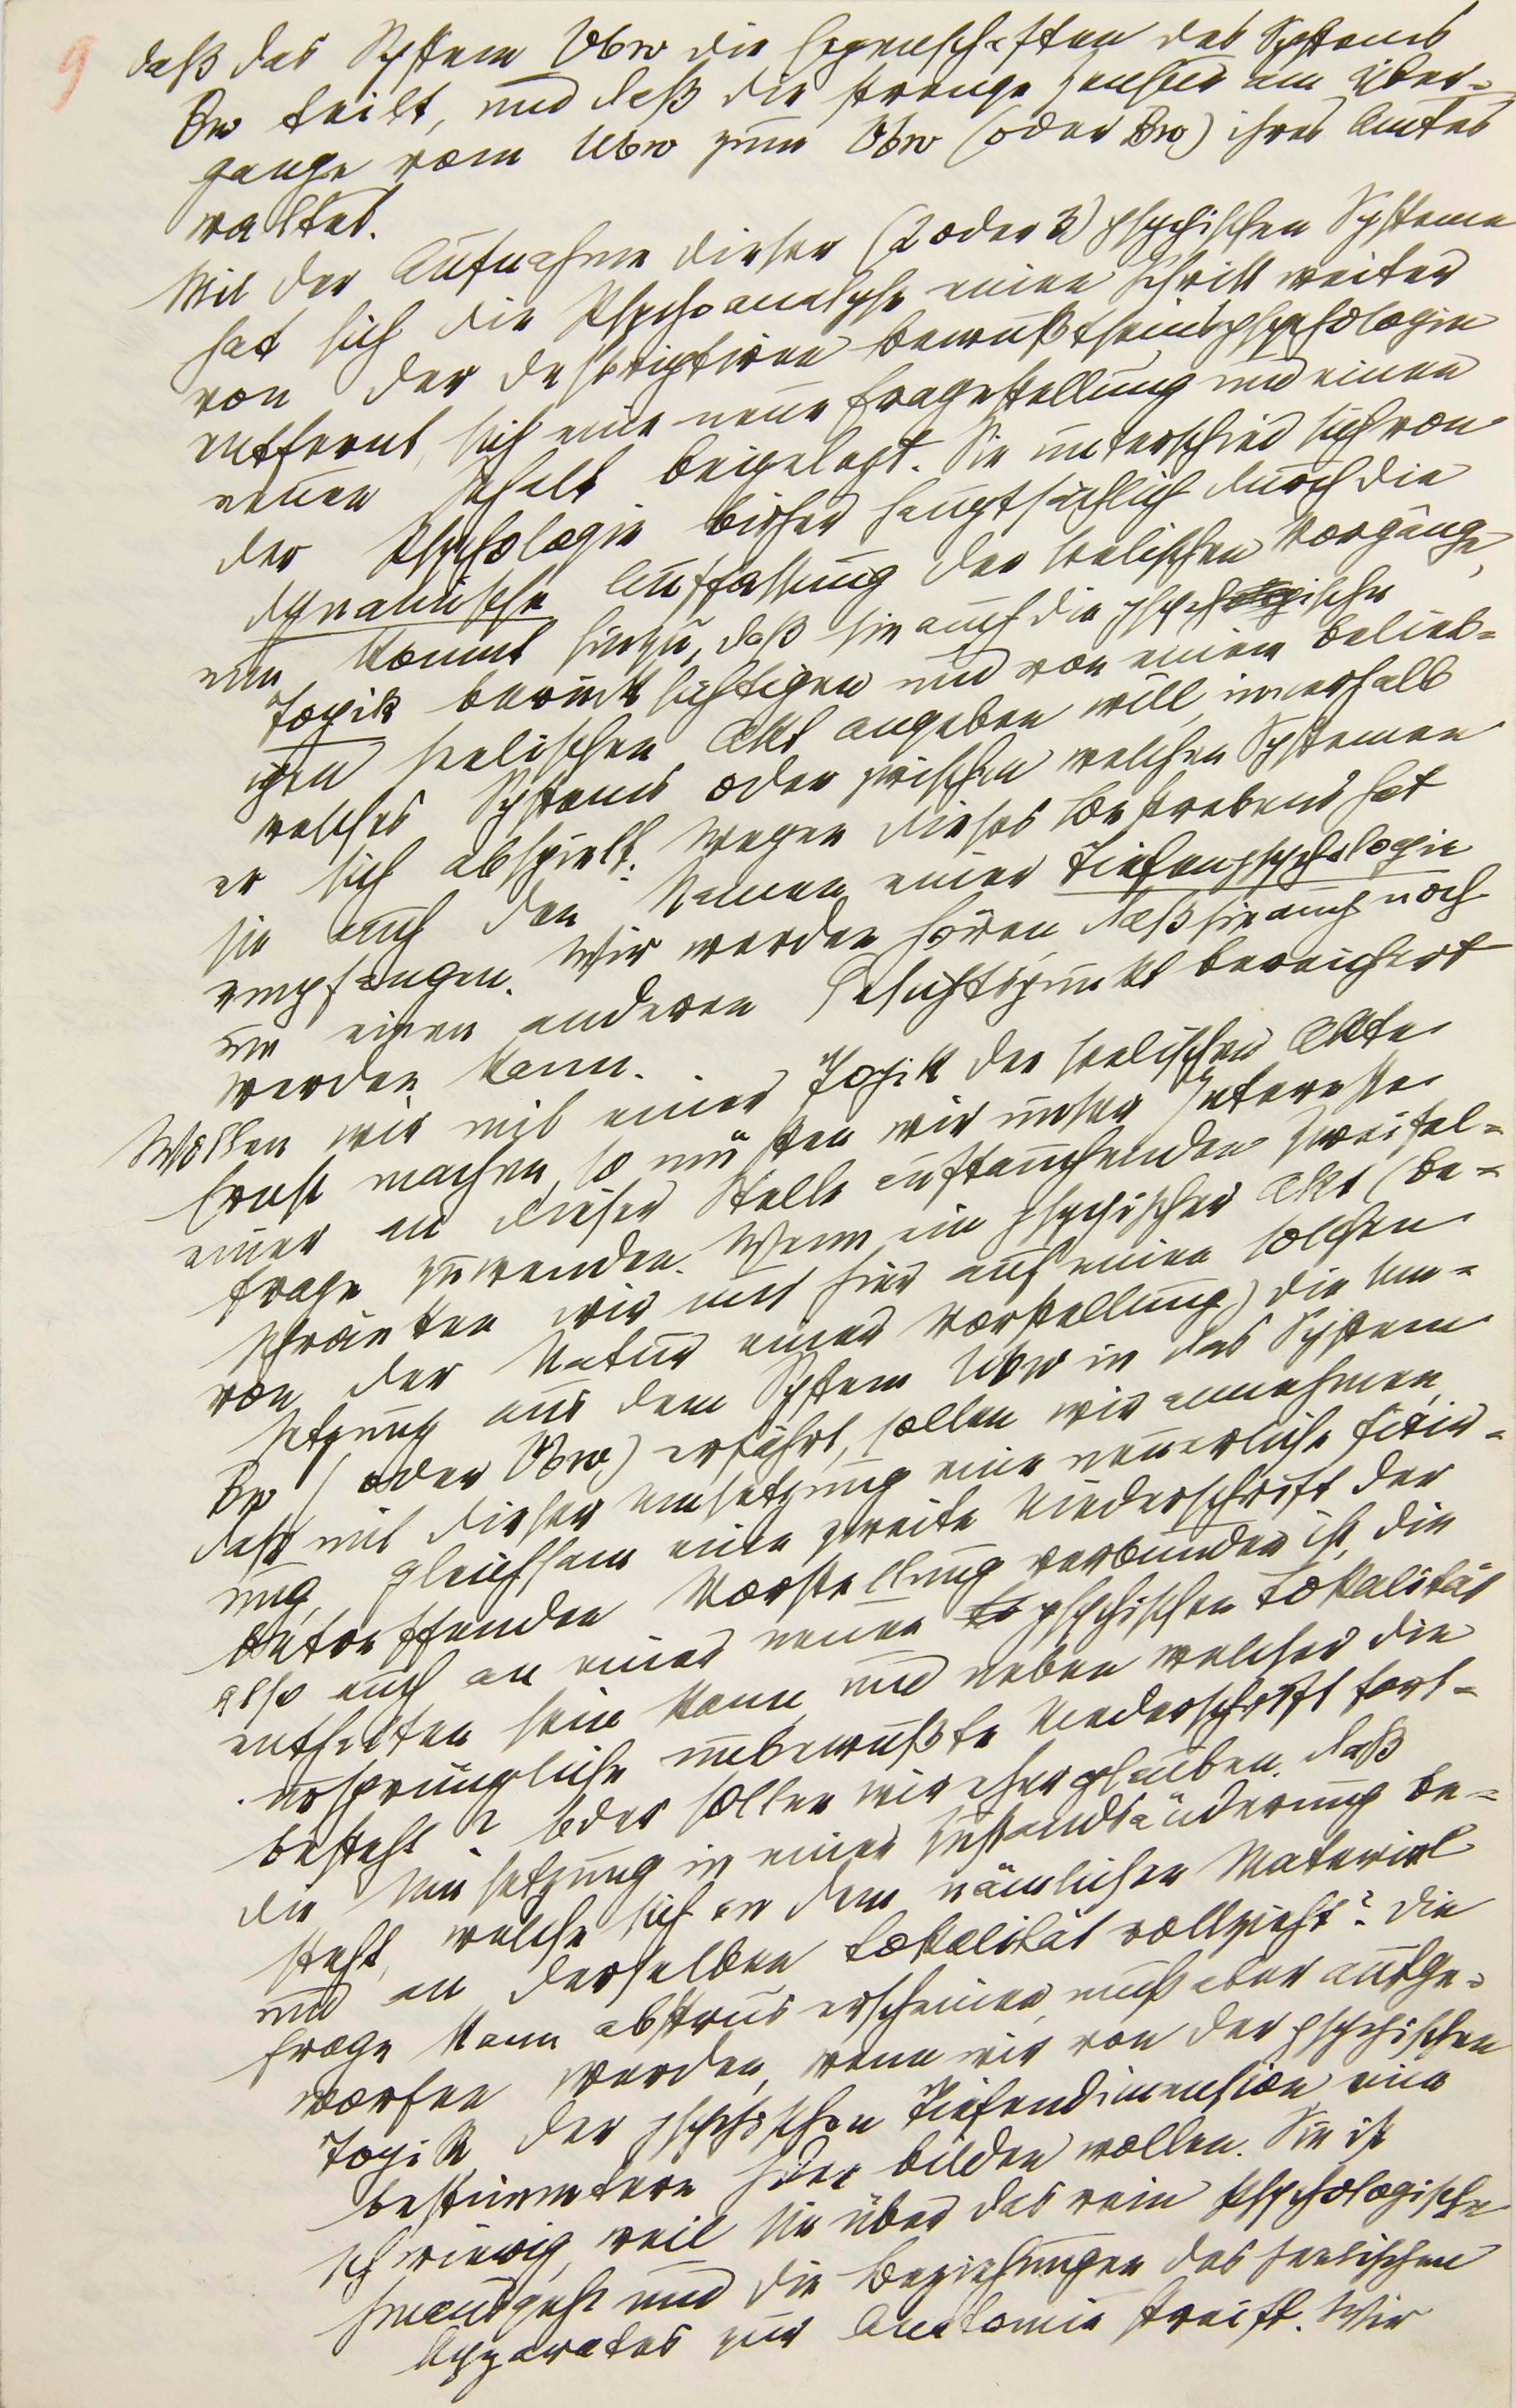 9
daß das System Vbw die Eigenschaften des Systems
Bw teilt, und daß die strenge Zensur am Über=
gange vom Ubw zum Vbw (oder Bw) ihres Amtes
waltet.
Mit der Aufnahme dieser (2 oder 3) psychischen Systeme
hat sich die Psychoanalyse einen Schritt weiter
von der deskriptiven Bewußtseinspsychologie
entfernt, sich eine neue Fragestellung und einen
neuen Inhalt beigelegt. Sie unterschied sich von
der Psychologie bisher hauptsächlich durch die
dynamische Auffassung der seelischen Vorgänge,
nun kommt hinzu, daß sie auch die psychische
Topik berücksichtigen und von einem belieb=
igen seelischen Akt angeben will, innerhalb
welches Systems oder zwischen welchen Systemen
er sich abspielt. Wegen dieses Bestrebens hat
sie auch den Namen einer Tiefenpsychologie
empfangen. Wir werden hören, daß sie auch noch
um einen anderen Gesichtspunkt bereichert
werden kann.
Wollen wir mit einer Topik der seelischen Akte
Ernst machen, so müssen wir unser Interesse
einer an dieser Stelle auftauchenden Zweifel=
frage zuwenden. Wenn ein psychischer Akt (be=
schränken wir uns hier auf einen solchen
von der Natur einer Vorstellung) die Um=
setzung aus dem System Ubw in das System
Bw (oder Vbw) erfährt, sollen wir annehmen,
daß mit dieser Umsetzung eine neuerliche Fixir=
ung, gleichsam eine zweite Niederschrift der
betreffenden Vorstellung verbunden ist, die
also auch an einer neuen psychischen Lokalität
enthalten sein kann und neben welcher die
ursprüngliche unbewußte Niederschrift fort=
besteht? Oder sollen wir eher glauben, daß
die Umsetzung in einer Zustandsänderung be=
steht, welche sich an dem nämlichen Material
und an derselben Lokalität vollzieht? Die
Frage kann abstrus erscheinen, muß aber aufge=
worfen werden, wenn wir von der psychischen
Topik, der psychischen Tiefendimension eine
bestimmtere Idee bilden wollen. Sie ist
schwierig, weil sie über das rein Psychologische
hinausgeht und die Beziehungen des seelischen
Apparates zur Anatomie streift. Wir